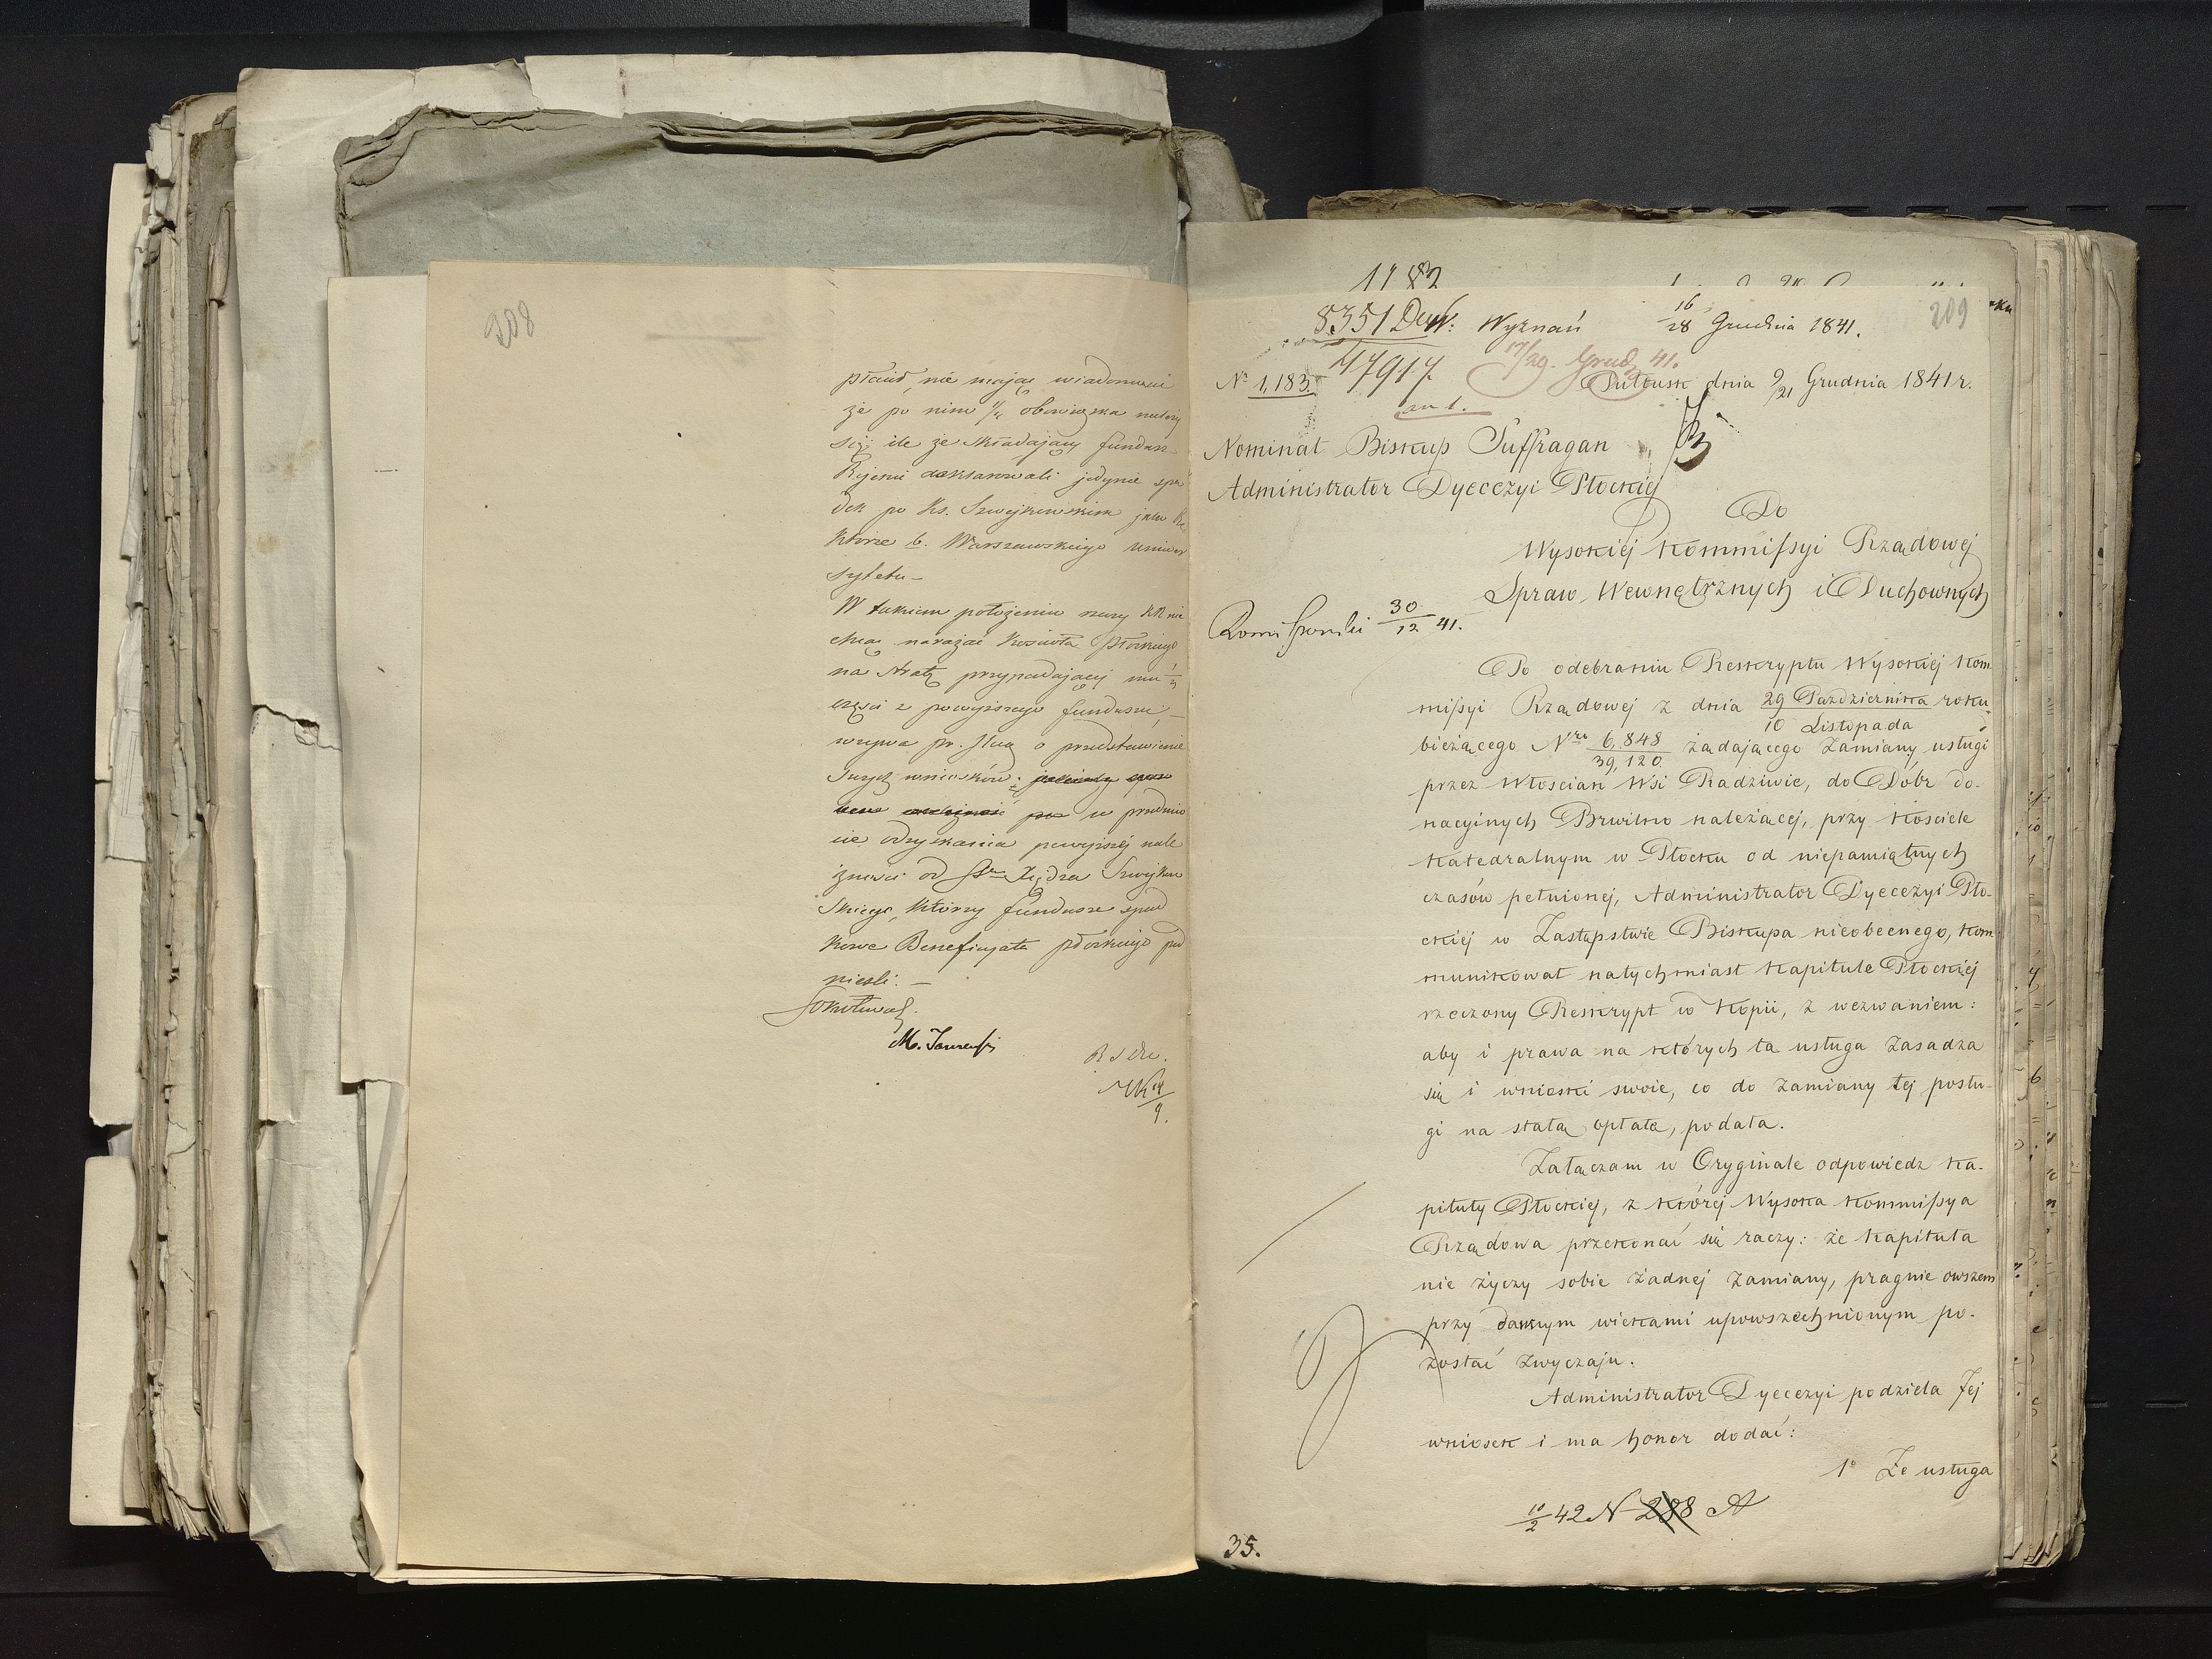 208
płacić, nie mając wiadomości
że po nim
się; ile że składający fundusz
Rejenci deklarowali jedynie spa
dek po Ks. Szwejkowskim jako Re
ktorze b. Warszawskiego Uniwer
sytetu –
W takiem położeniu rzeczy KR nie
chcąc narażać Kościoła Płockiego
na stratę przypadającej mu
części z powyższego funduszu, –
wzywa pr. JWą o przedstawienie
Swych wniosków:
w przedmio
cie odzyskania powyższej nale
żności od Szwejkow
skiego, którzy fundusze spad
kowe Beneficyata płockiego pod
nieśli. –

M.
14
9.
1182
8351 Dw W: Wyznań 16/28 Grudnia 1841.
209
47917. 17/29. Grud. 41.
an 1.
No 1,183. Pułtusk dnia 9/21 Grudnia 1841 r.
Nominat Biskup Suffragan
Administrator Dyecezyi Płockiej
Do
Wysokiej Kommissyi Rządowej
Spraw Wewnętrznych i Duchownych
30/12 41.
Po odebraniu Reskryptu Wysokiej Kom
missyi Rządowej z dnia 29 Października / 10 Listopada roku
bieżącego Nro 6,848 / 39,120 żądającego zamiany usługi
przez Włościan Wsi Radziwie, do Dóbr do-
nacyinych Brwilno należącej, przy Kościele
Katedralnym w Płocku od niepamiątnych
czasów pełnionej, Administrator Dyecezyi Pło-
ckiej w Zastępstwie Biskupa nieobecnego, kom
munikował natychmiast Kapitule Płockiej
rzeczony Reskrypt w Kopii, z wezwaniem:
aby i prawa na których ta usługa zasadza
się i wnioski swoie, co do zamiany tej posłu-
gi na stałą opłatę, podała.
Załączam w Oryginale odpowiedz Ka-
pituły Płockiej, z której Wysoka Kommissya
Rządowa przekonać się raczy: że Kapituła
nie życzy sobie żadnej zamiany, pragnie owszem
przy dawnym wiekami upowszechnionym po-
zostać zwyczaju.
Administrator Dyecezyi podziela Jej
wniosek i ma honor dodać:
1o Że usługa
10/2 42 N 288 A
35.